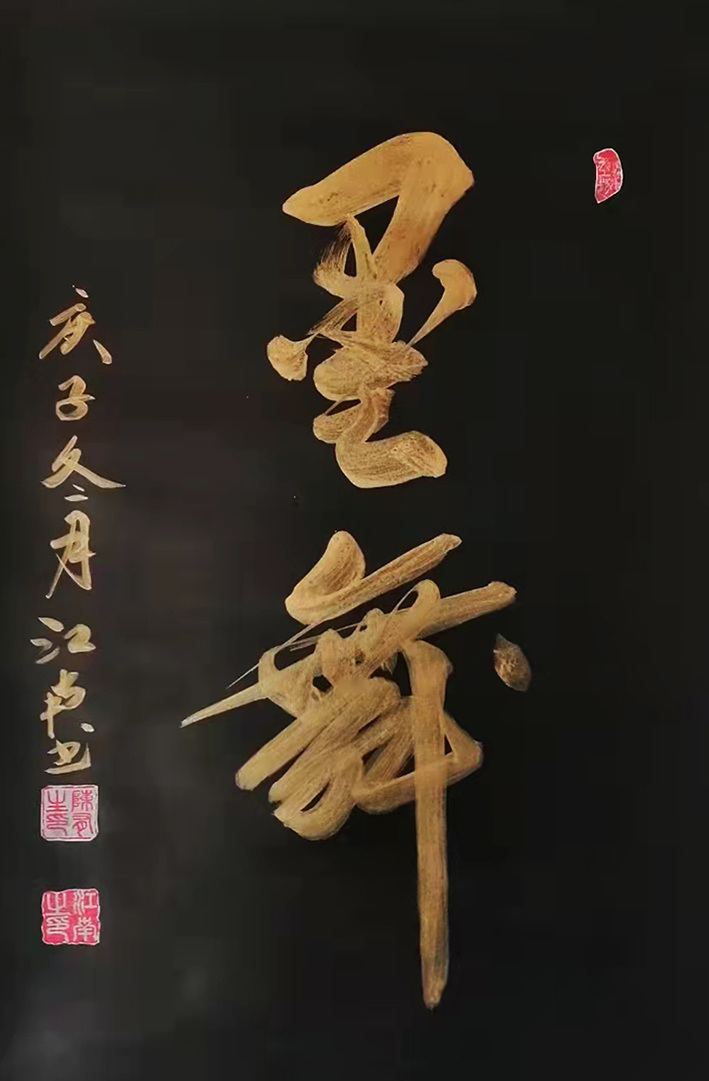 墨舞
庚子冬月江南书
江南之印